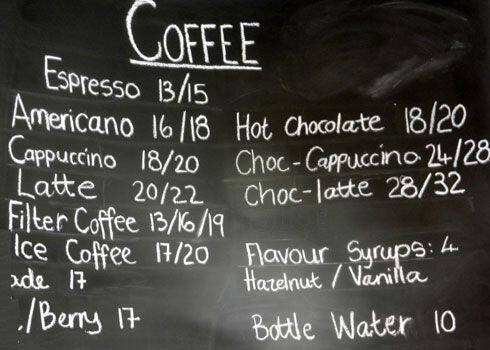 COFFEE
Espresso 13/15
Americano 16/18
Cappuccino 18/20
Latte 20/22
Filter Coffee 13/16/19
Ice Coffee 17/20
17
/Berry 17
Hot Chocolate 18/20
Choc-Cappuccino 24/28
Choc-latte 28/32
Flavour Syrups: 4
Hazelnut / Vanilla
Bottle Water 10